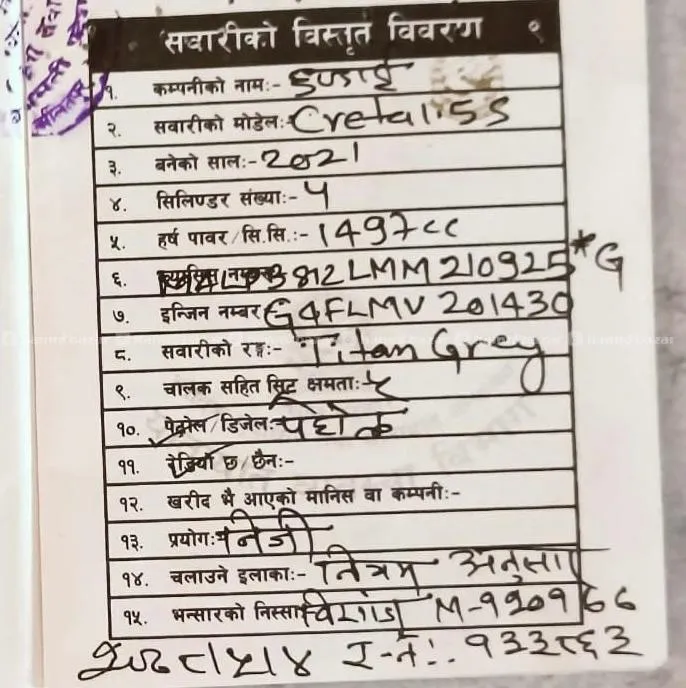 सवारीको विस्तृत विवरण १
१. कम्पनीको नाम:- हुण्डाई
२. सवारीको मोडेल: Creta 1.5 S
३. बनेको साल:- 2021
४. सिलिण्डर संख्या:- 4
५. हर्ष पावर/सि.सि.:- 1497cc
६. LMM210925*G
७. इन्जिन नम्बर G4FLMV201430
८. सवारीको रङ्ग:- Titan Grey
९. चालक सहित सिट क्षमता:- ५
१०. पेट्रोल/डिजेल:- पेट्रोल
११. रेडियो छ/छैन:-
१२. खरीद भै आएको मानिस वा कम्पनी:-
१३. प्रयोग:- निजी
१४. चलाउने इलाका:- नियम अनुसार
१५. भन्सारको निस्सा M-११०१
र.नं.:. १३३८६३